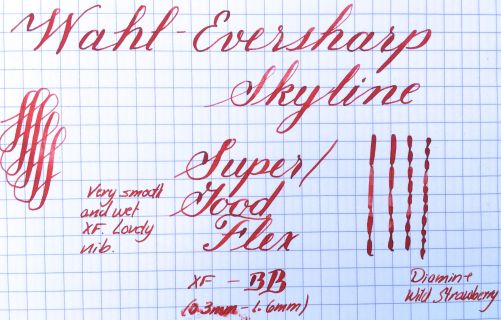 Wahl-Eversharp
Skyline
Super/
Good
Flex
Very smooth
and wet
XF. Lovely
nib.
XF - BB
(0.3mm - 1.6mm)
Diamine
Wild Strawberry